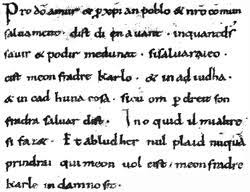 Pro dō amur & p xp̄ian poblo & nr̄o cōmun
saluament . dist di en auant . inquantds
sauir & podir medunat . sisaluaraieo .
cist meon fradre Karlo . & in adiudha .
& in cad huna cosa . sicū om p dreit son
fradra saluar dist . Ino quid il mialtre
si faz& . Et abludher nul plaid nūquā
prindrai qui meon uol cist . meon fradre
Karle in damno sit .